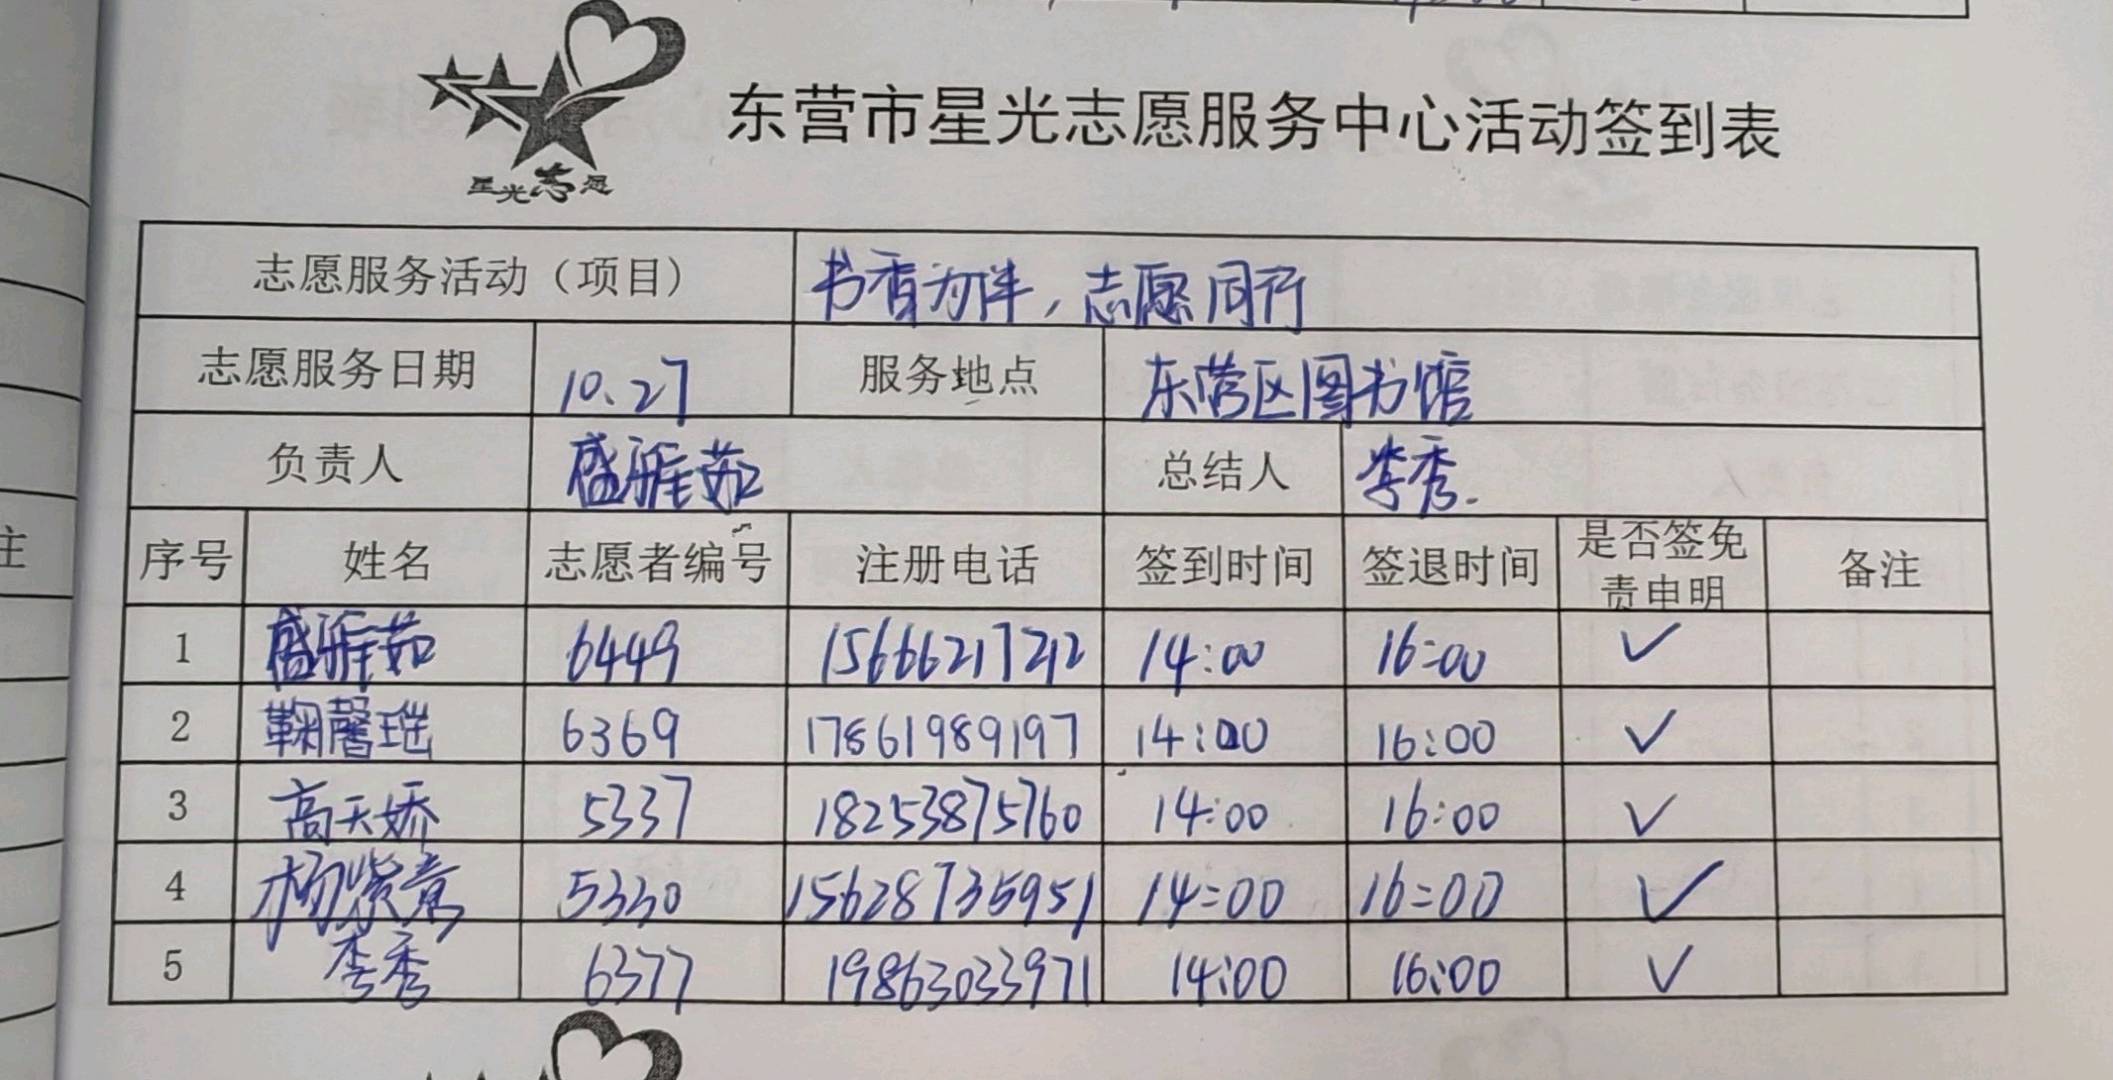 星光志愿
东营市星光志愿服务中心活动签到表
志愿服务活动（项目） 书香为伴，志愿同行
志愿服务日期 10.27 服务地点 东营区图书馆
负责人 盛雅茹 总结人 李秀.
序号 姓名 志愿者编号 注册电话 签到时间 签退时间 是否签免责申明 备注
1 盛雅茹 6449 15666217212 14:00 16:00 ✓
2 鞠馨瑶 6369 17861989197 14:00 16:00 ✓
3 高天娇 5337 18253875760 14:00 16:00 ✓
4 杨紫意 5330 15628735951 14:00 16:00 ✓
5 李秀 6377 19863033971 14:00 16:00 ✓
注